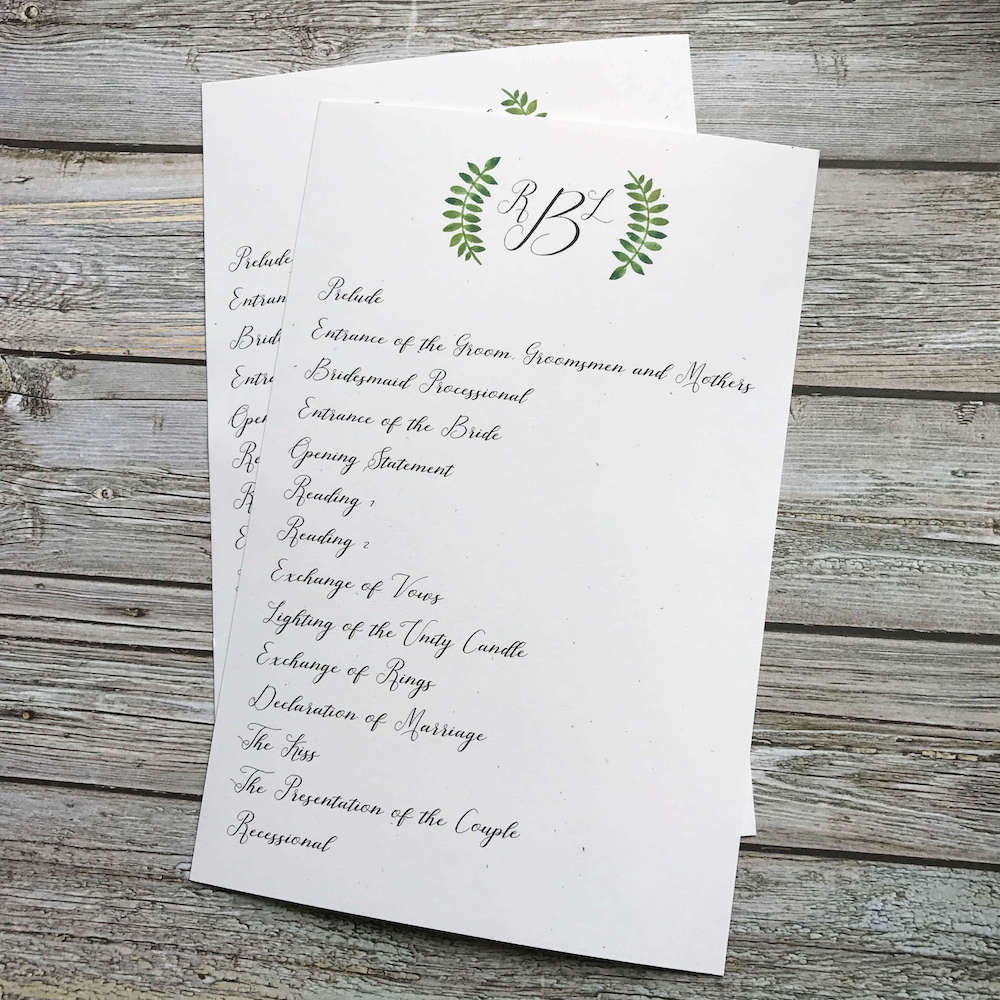 R B L
Prelude
Entrance of the Groom, Groomsmen and Mothers
Bridesmaid Processional
Entrance of the Bride
Opening Statement
Reading 1
Reading 2
Exchange of Vows
Lighting of the Unity Candle
Exchange of Rings
Declaration of Marriage
The Kiss
The Presentation of the Couple
Recessional
Prelude